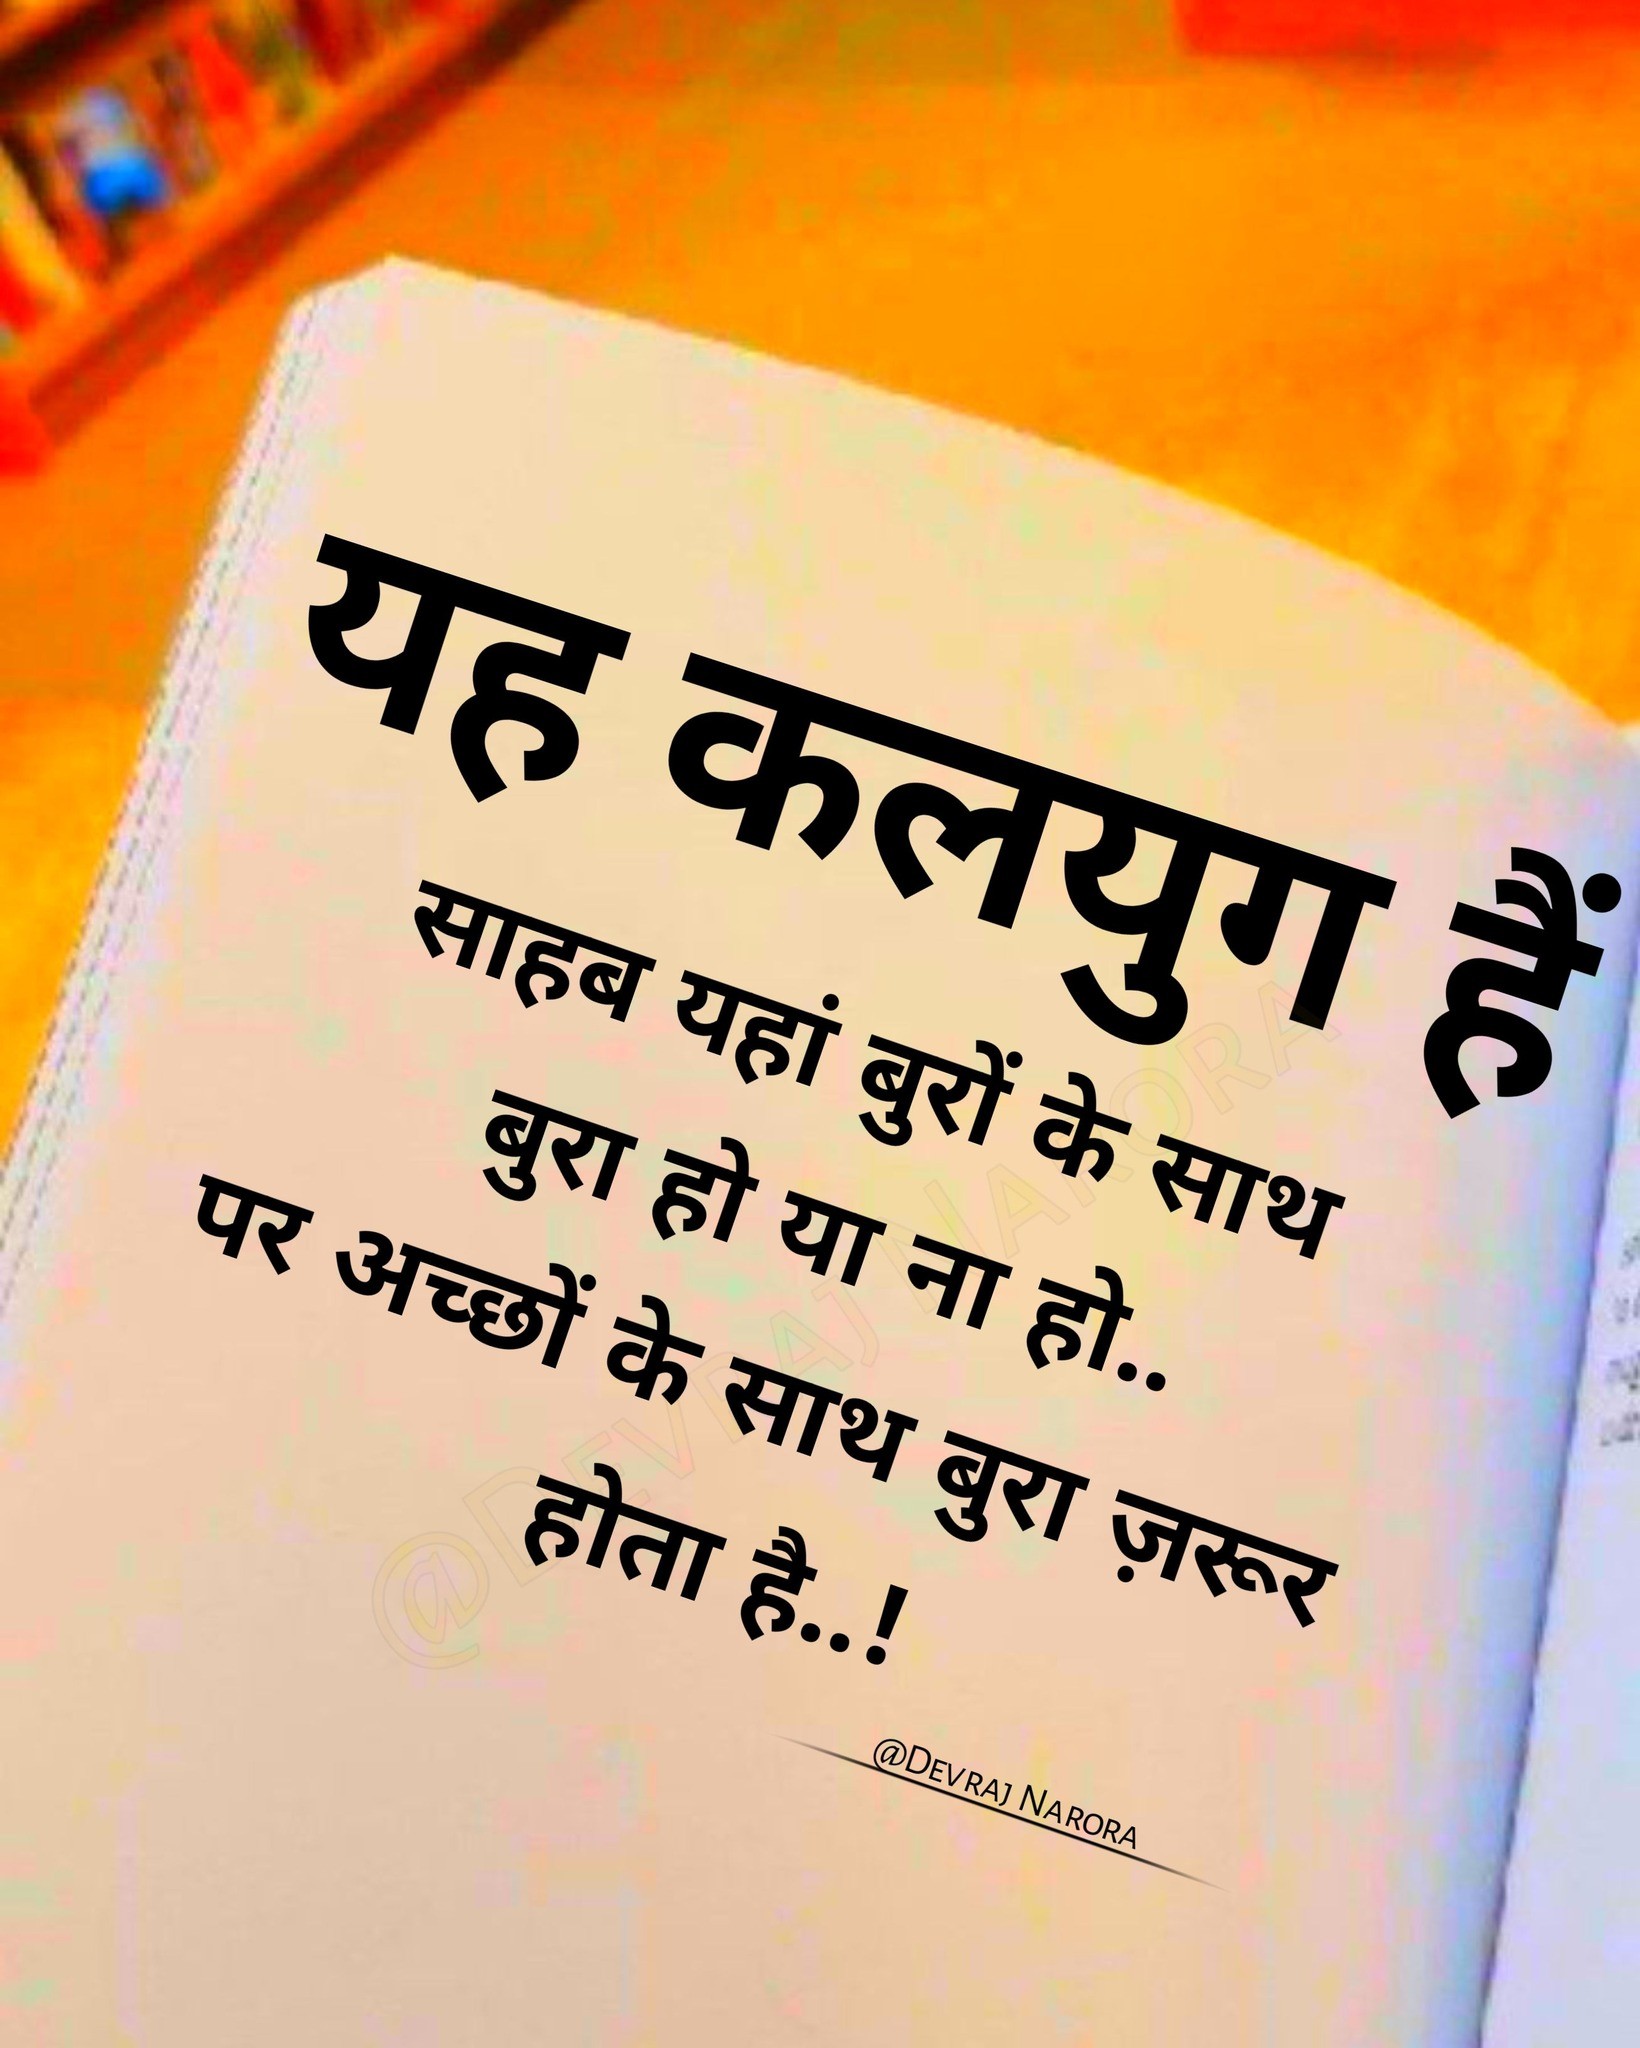 यह कलयुग हैं
साहब यहां बुरों के साथ
बुरा हो या ना हो..
पर अच्छों के साथ बुरा ज़रूर
होता है..!
@Devraj Narora
@Devraj Narora